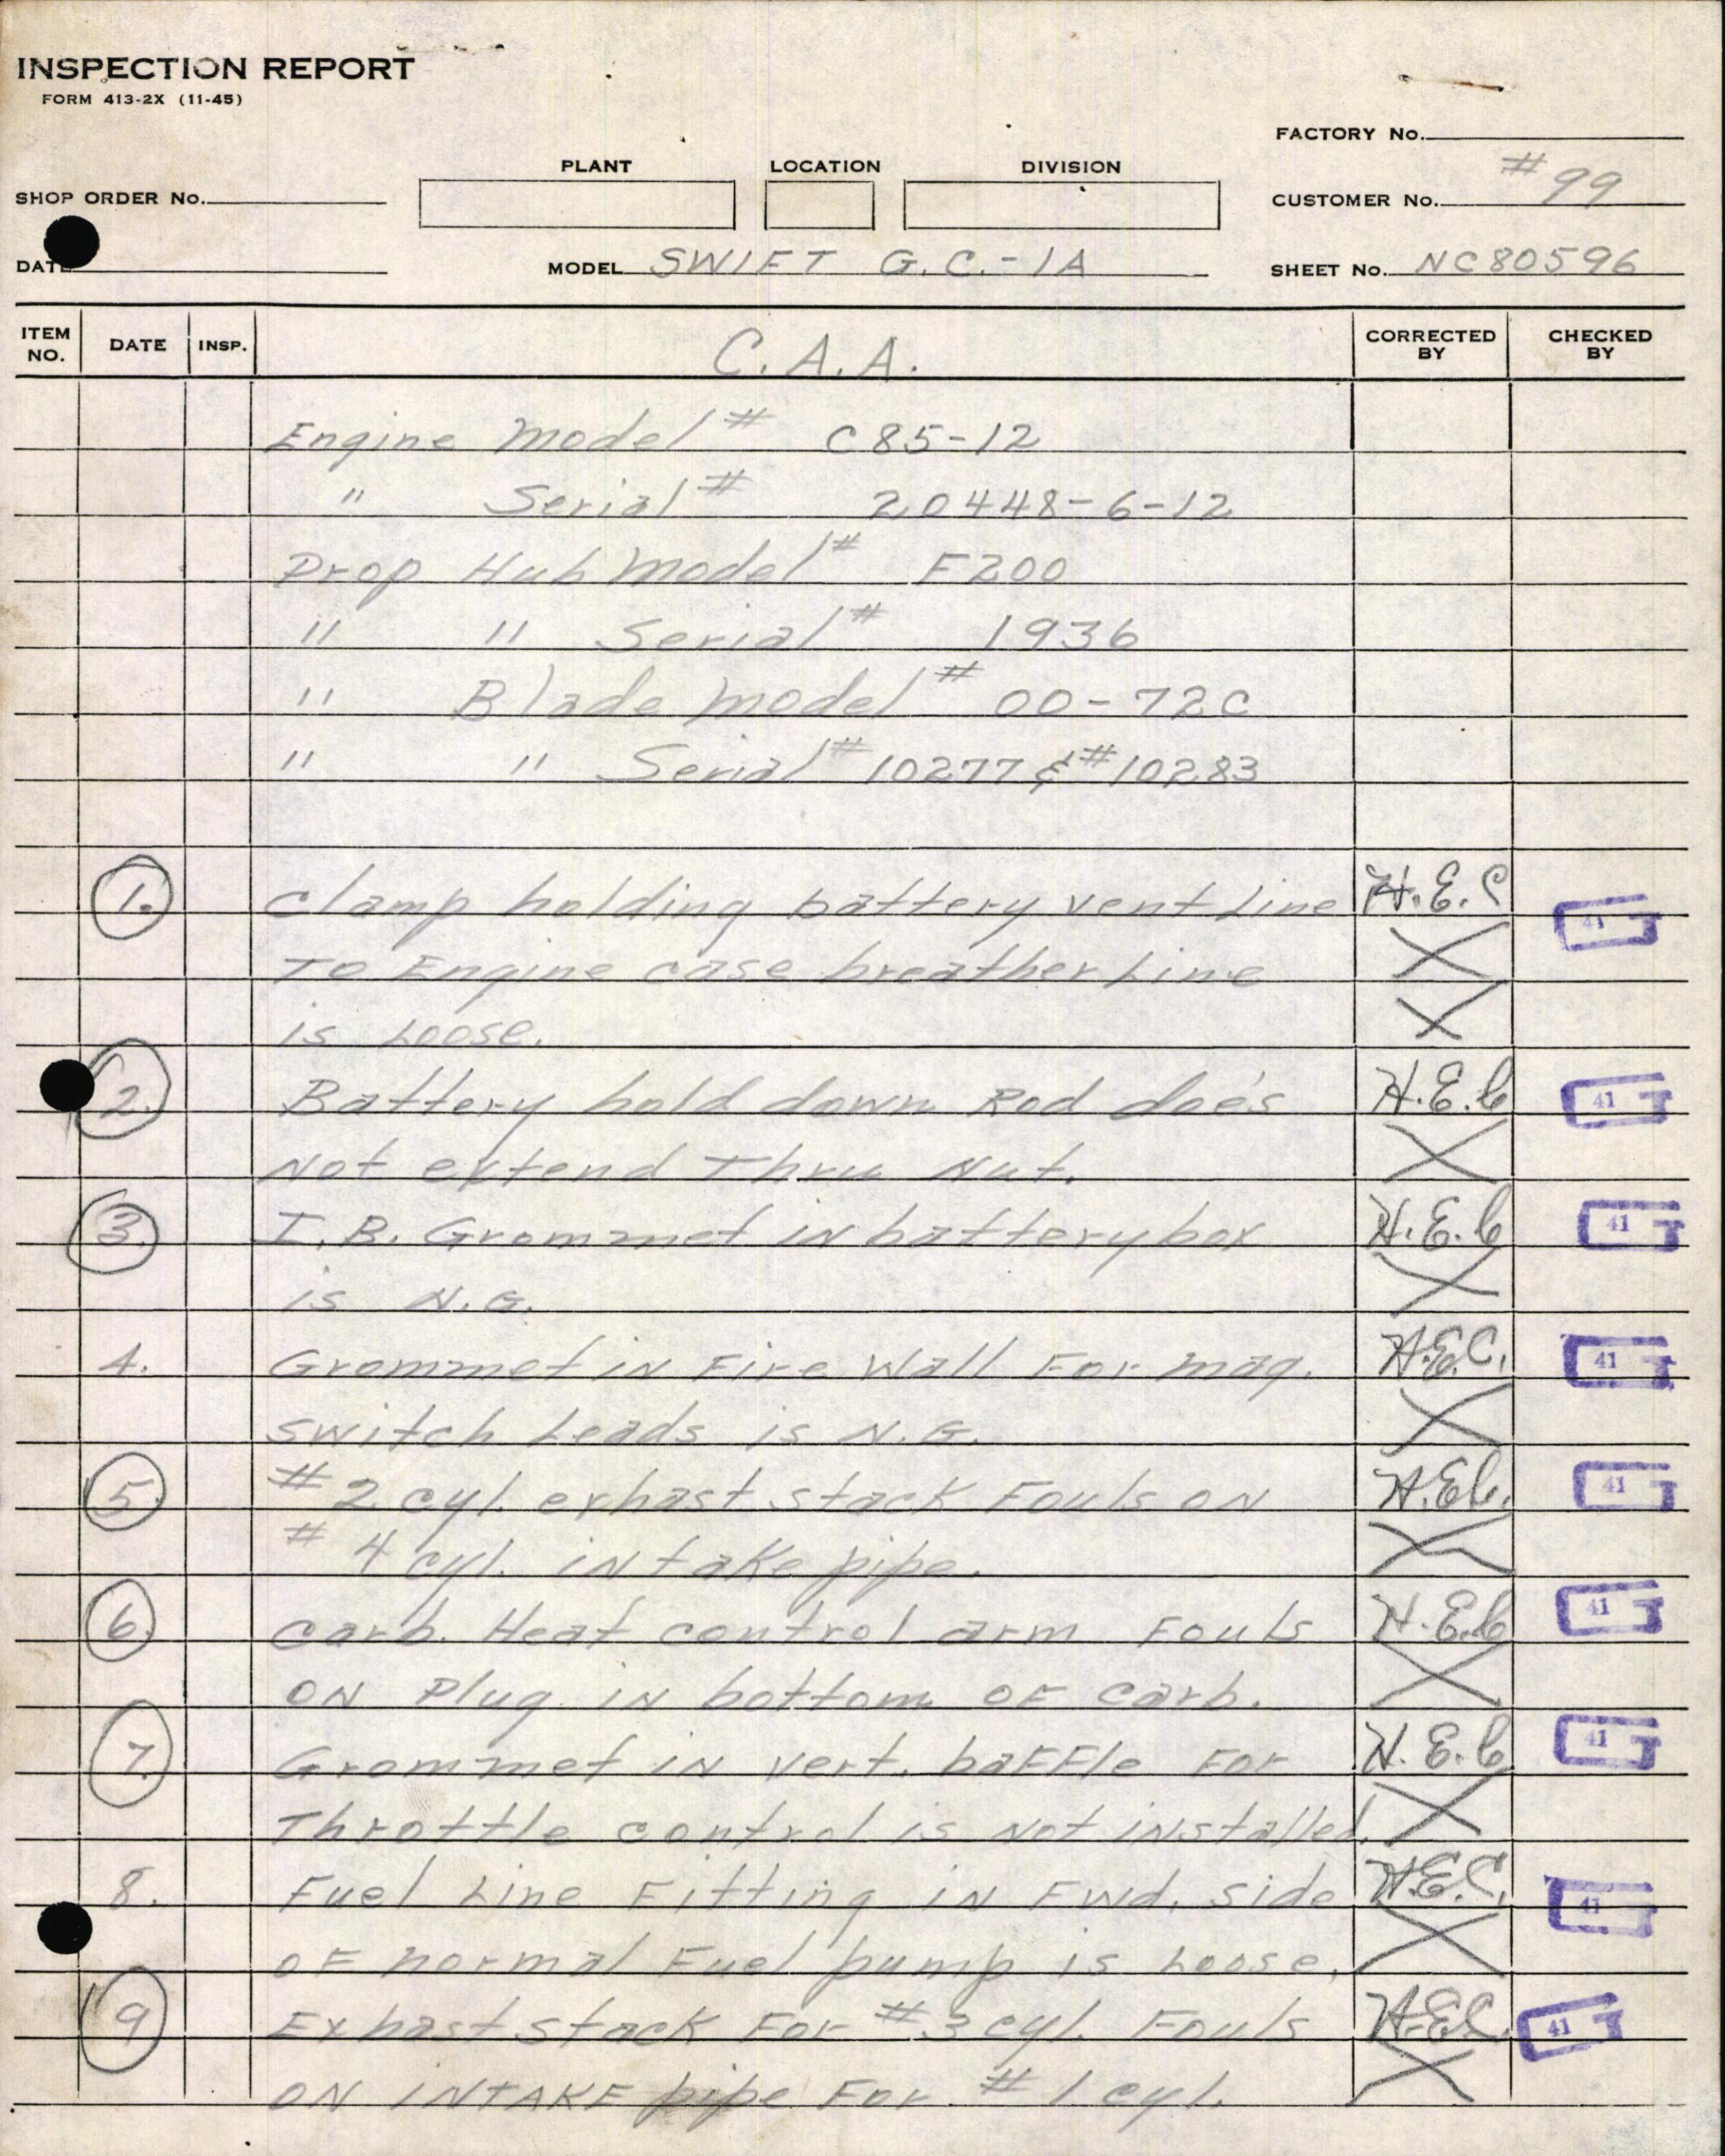 INSPECTION REPORT
FORM 413-2X (11-45)
FACTORY No.
PLANT LOCATION DIVISION
SHOP ORDER No. CUSTOMER No. #99
DATE MODEL SWIFT G.C.-1A SHEET No. NC80596
ITEM NO. DATE INSP. C.A.A. CORRECTED BY CHECKED BY
Engine Model # C85-12
" Serial # 20448-6-12
Prop Hub Model # F200
" " Serial # 1936
" Blade Model # 00-72C
" " Serial # 10277 & # 10283
1. Clamp holding battery vent Line H.E.C 41
To Engine case breather Line X
is Loose. X
2. Battery hold down Rod does H.E.C 41
Not extend Thru Nut. X
3. I.B. Grommet in battery box H.E.C 41
is N.G. X
4. Grommet in Fire Wall For mag. H.E.C. 41
switch Leads is N.G. X
5. #2 cyl. exhast stack Fouls on H.E.C. 41
#4 cyl. intake pipe. X
6. Carb. Heat control arm Fouls H.E.C 41
ON Plug in bottom OF Carb. X
7. Grommet in vert. baFFle For H.E.C 41
Throttle control is Not installed. X
8. Fuel Line Fitting in Fwd. side H.E.C. 41
OF normal Fuel pump is Loose. X
9 Exhast stack For #3 cyl. Fouls H.E.C. 41
ON INTAKE pipe For #1 cyl. X